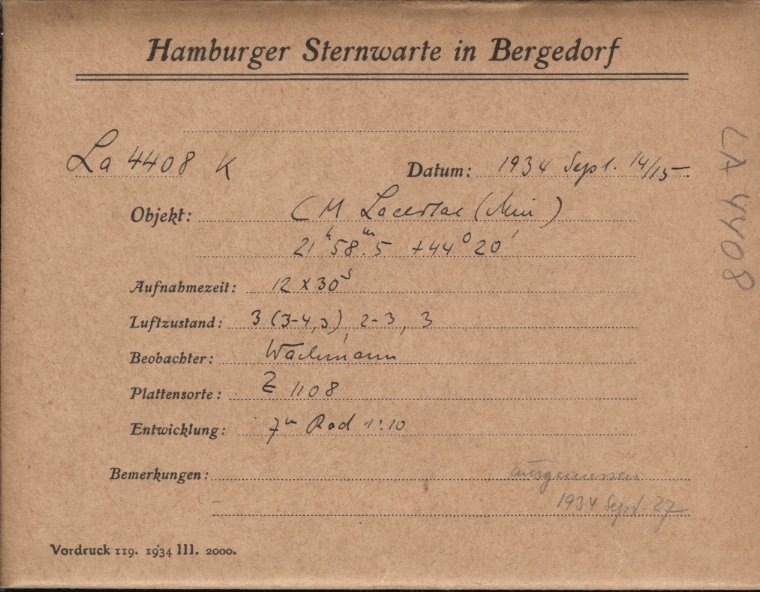 Hamburger Sternwarte in Bergedorf
La 4408 K
Datum: 1934 Sept. 14/15
Objekt: CM Lacertae (Min)
21ʰ 58ᵐ.5 +44° 20′
Aufnahmezeit: 12 x 30ˢ
Luftzustand: 3 (3-4,3), 2-3, 3
Beobachter: Wachmann
Plattensorte: Z 1108
Entwicklung: 7ᵐ Rod 1:10
Bemerkungen: ausgemessen
1934 Sept. 27
Vordruck 119. 1934 III. 2000.
LA 4408